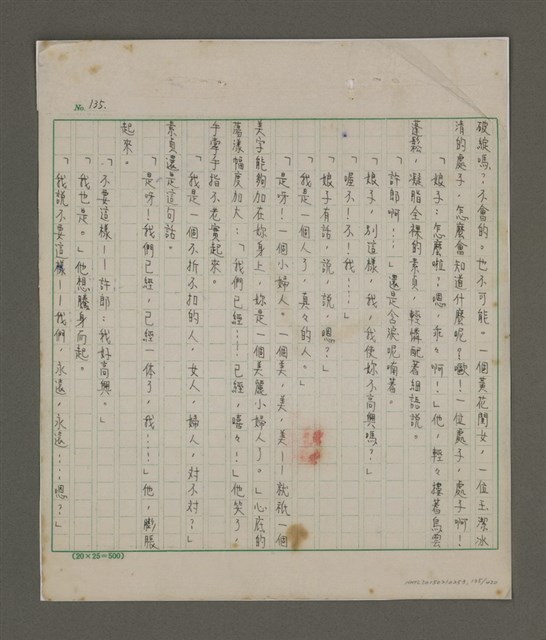 No. 135.
破綻嗎?不會的。也不可能。一個黃花閨女,一位玉潔冰
清的處子,怎麼會知道什麼呢?噢!一位處子,處子啊!
「娘子:怎麼啦?嗯,乖々啊!」他,輕々摟著烏雲
蓬鬆,凝脂全裸的素貞,輕憐蜜著細語說。
「許郎啊……」還是含淚呢喃著。
「娘子,別這樣,我,我使妳不高興嗎?」
「喔不!不!我……」
「娘子有話,說,說,嗯?」
「我是一個人了,真々的人。」
「是呀!一個小婦人。一個美,美,美——就祇一個
美字能夠加在妳身上,妳是一個美麗小婦人了。」心底的
蕩漾幅度加大:「我們已經……已經,嘻々!」他笑了,
手掌手指不老實起來。
「我是一個不折不扣的人,女人,婦人,對不對?」
素貞還是這句話。
「是呀!我們已經,已經一体了,我……」他,膨脹
起來。
「不要這樣——許郎:我好高興。」
「我也是。」他想騰身向起。
「我說不要這樣——我們,永遠,永遠……嗯?」
(20×25=500)